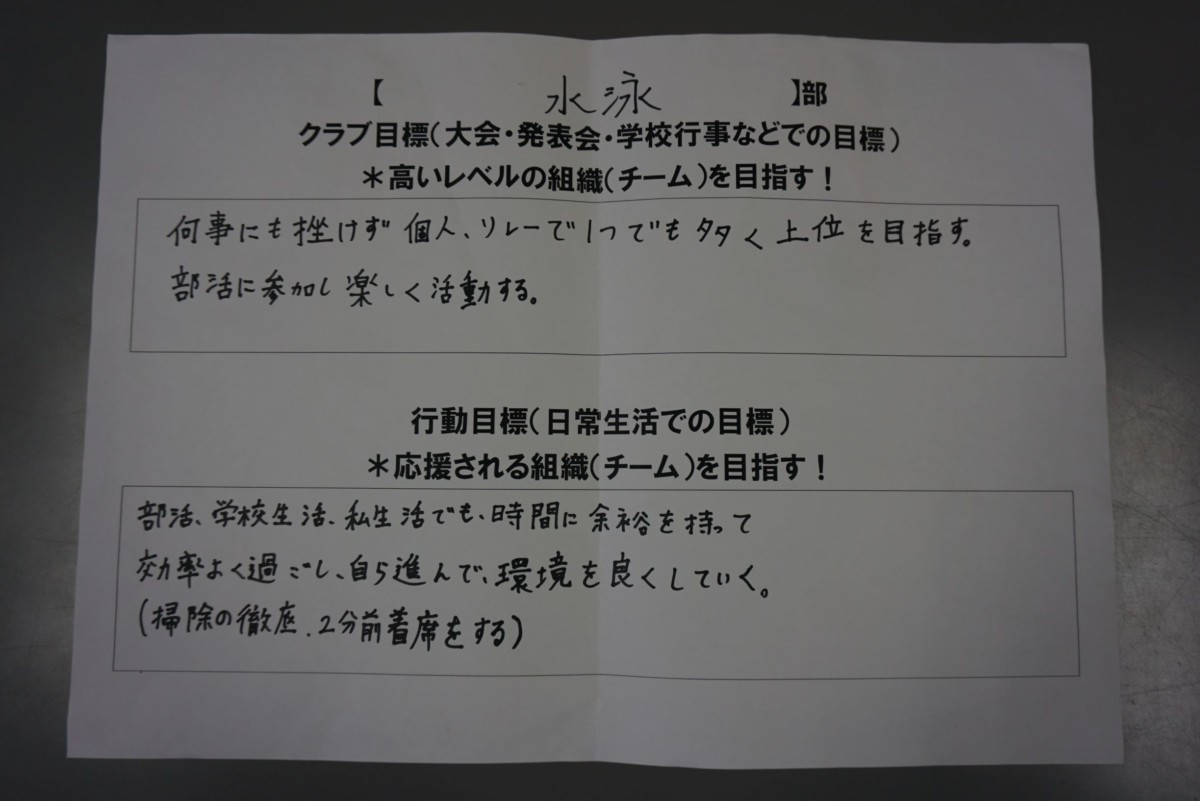 【 水泳 】部
クラブ目標(大会・発表会・学校行事などでの目標)
＊高いレベルの組織(チーム)を目指す！
何事にも挫けず個人、リレーで1つでも多く上位を目指す。
部活に参加し楽しく活動する。
行動目標(日常生活での目標)
＊応援される組織(チーム)を目指す！
部活、学校生活、私生活でも、時間に余裕を持って
効率よく過ごし、自ら進んで、環境を良くしていく。
(掃除の徹底、2分前着席をする)